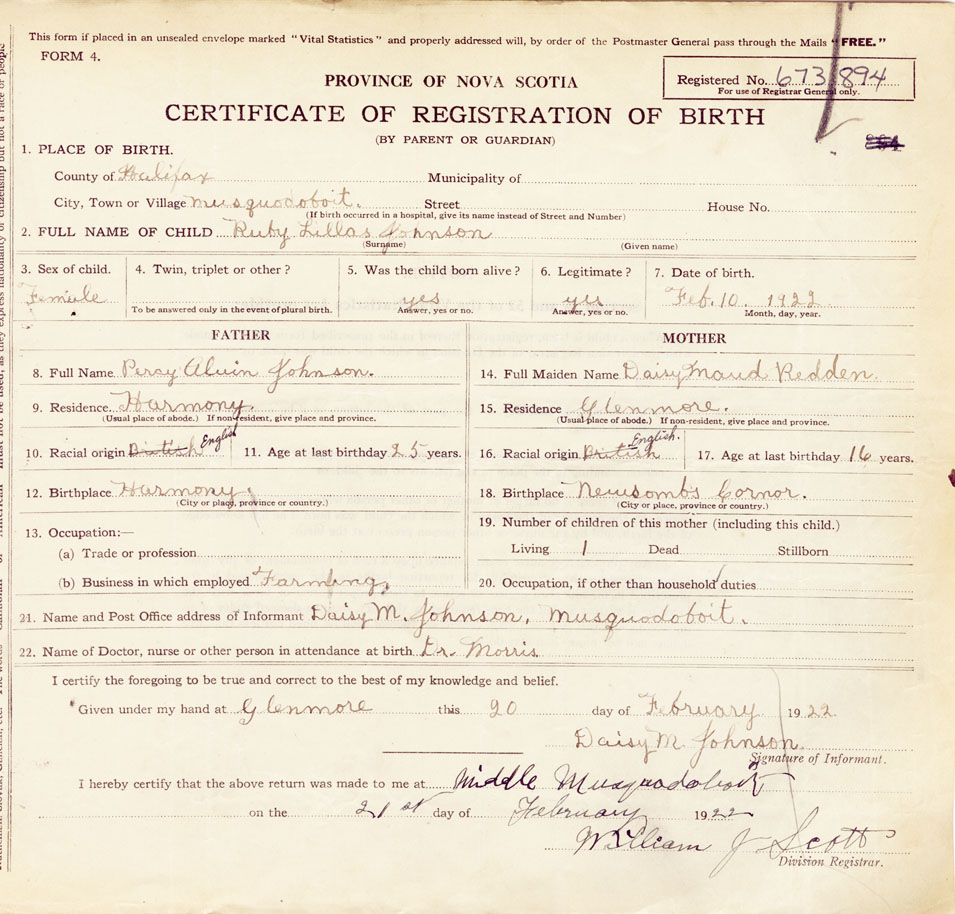 This form if placed in an unsealed envelope marked "Vital Statistics" and properly addressed will, by order of the Postmaster General pass through the Mails "FREE."
FORM 4.
PROVINCE OF NOVA SCOTIA
Registered No. 673894
For use of Registrar General only.
CERTIFICATE OF REGISTRATION OF BIRTH
(BY PARENT OR GUARDIAN)
1. PLACE OF BIRTH.
County of Halifax Municipality of
City, Town or Village Musquodoboit. Street House No.
(If birth occurred in a hospital, give its name instead of Street and Number)
2. FULL NAME OF CHILD Ruby Lillas Johnson
(Surname) (Given name)
3. Sex of child. 4. Twin, triplet or other? 5. Was the child born alive? 6. Legitimate? 7. Date of birth.
Female yes yes Feb. 10. 1922
To be answered only in the event of plural birth. Answer, yes or no. Answer, yes or no. Month, day, year.
FATHER MOTHER
8. Full Name Percy Alvin Johnson. 14. Full Maiden Name Daisy Maud Redden.
9. Residence. Harmony. 15. Residence Glenmore.
(Usual place of abode.) If non-resident, give place and province. (Usual place of abode.) If non-resident, give place and province.
10. Racial origin British English 11. Age at last birthday 25 years. 16. Racial origin British English. 17. Age at last birthday 16 years.
12. Birthplace Harmony 18. Birthplace Newsombs Cornor.
(City or place, province or country.) (City or place, province or country.)
13. Occupation:— 19. Number of children of this mother (including this child.)
(a) Trade or profession Living 1 Dead Stillborn
(b) Business in which employed Farming, 20. Occupation, if other than household duties
21. Name and Post Office address of Informant Daisy M. Johnson, Musquodoboit.
22. Name of Doctor, nurse or other person in attendance at birth Dr. Morris.
I certify the foregoing to be true and correct to the best of my knowledge and belief.
Given under my hand at Glenmore this 20 day of February 1922
Daisy M. Johnson.
Signature of Informant.
I hereby certify that the above return was made to me at Middle Musquodoboit
on the 21st day of February 1922
William J Scott
Division Registrar.